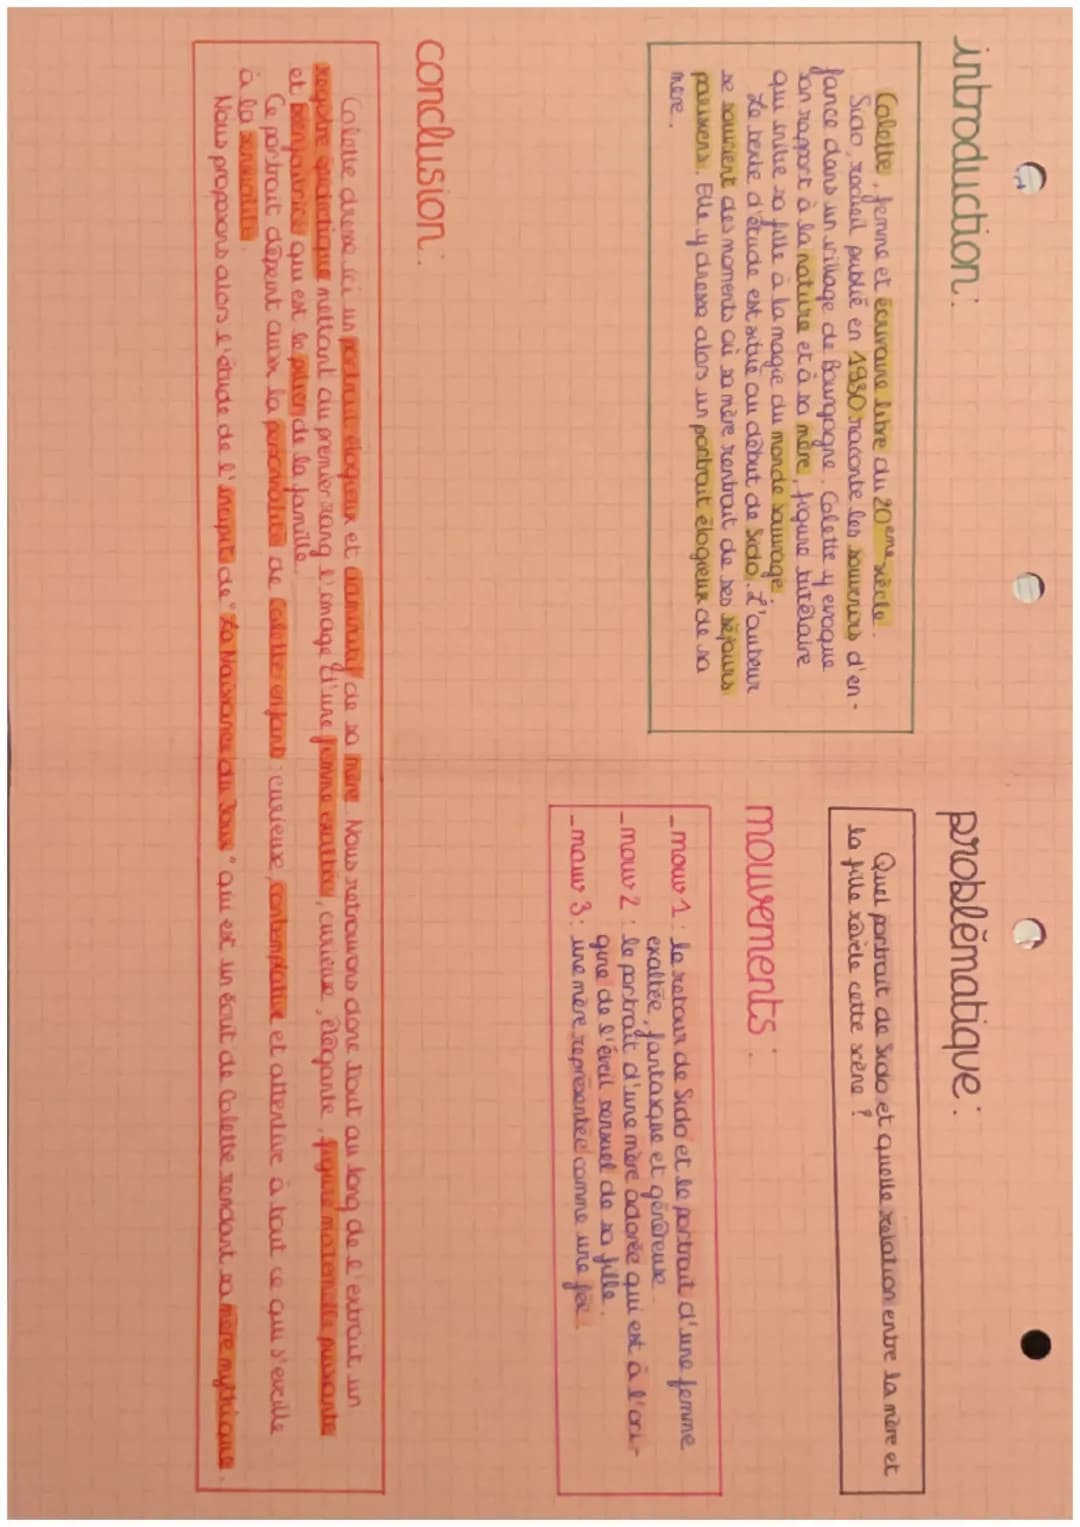 introduction :
Colette, femme et écrivaine libre du 20ème siècle.
Sido, recueil publié en 1930 raconte les souvenirs d'en-
fance dans un village de Bourgogne. Colette y evoque
son rapport à la nature et à sa mère, figure tutélaire
qui initie sa fille à la magie du monde sauvage.
Le texte d'étude est situé au début de Sido. L'auteur
se souvient des moments où sa mère rentrait de ses séjours
parisiens. Elle y dresse alors un portrait élogieux de sa
mère.
problématique :
Quel portrait de Sido et quelle relation entre la mère et
la fille révèle cette scène ?
mouvements :
_mouv 1 : le retour de Sido et le portrait d'une femme
exaltée, fantasque et généreuse.
_mouv 2 : le portrait d'une mère adorée qui est à l'ori-
gine de l'éveil sensuel de sa fille.
_mouv 3 : une mère représentée comme une fée.
conclusion :
Colette dresse ici un portrait élogieux et de sa mère. Nous retrouvons donc tout au long de l'extrait un
registre épidictique mettant au premier rang l'image d'une femme exaltée, curieuse, élégante, figure maternelle puissante
et qui est le pilier de la famille.
Ce portrait dépeint aussi la personnalité de Colette enfant : curieuse, contemplative et attentive à tout ce qui s'eveille
à la sensualité.
Nous proposons alors l'étude de l'incipit de "La Naissance du Jour" qui est un écrit de Colette rendant sa mère mythique.